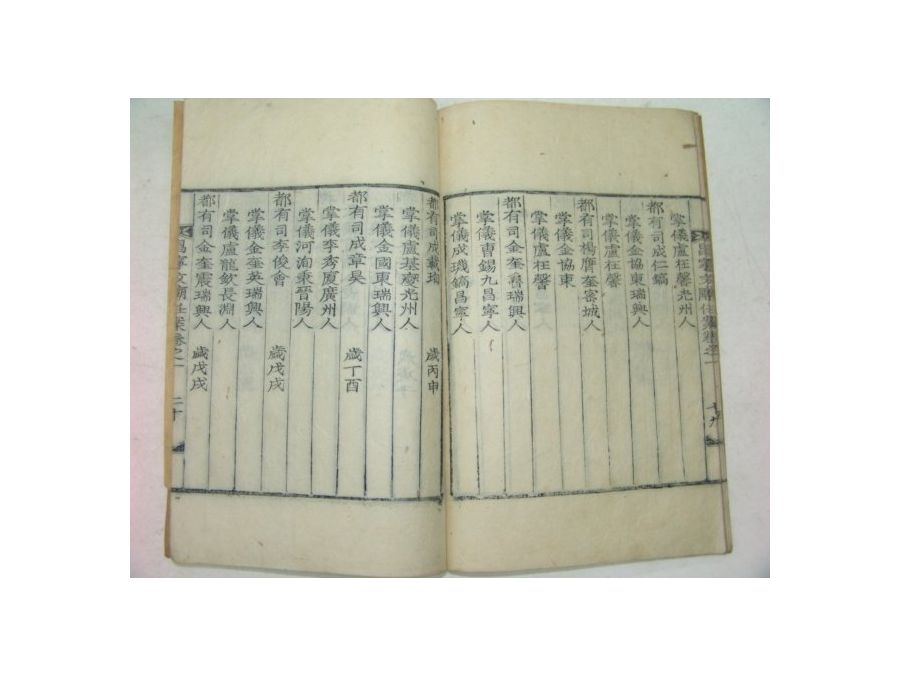 昌寧文廟任案卷之一
十九
掌儀盧在馨光州人
都有司成仁鎬
掌儀金協東瑞興人
掌儀金協東
都有司楊膺奎密城人
掌儀盧在馨
掌儀
都有司金奎魯瑞興人
掌儀曺錫九昌寧人
掌儀成璣鎬昌寧人
都有司成載 歲丙申
掌儀盧基 光州人
掌儀金國東瑞興人
都有司成章昊 歲丁酉
掌儀李秀廈廣州人
掌儀河洵秉晉陽人
都有司李俊會 歲戊戌
掌儀金奎英瑞興人
掌儀盧龍欽長淵人
都有司金奎震瑞興人 歲戊戌
昌寧文廟任案卷之一
二十